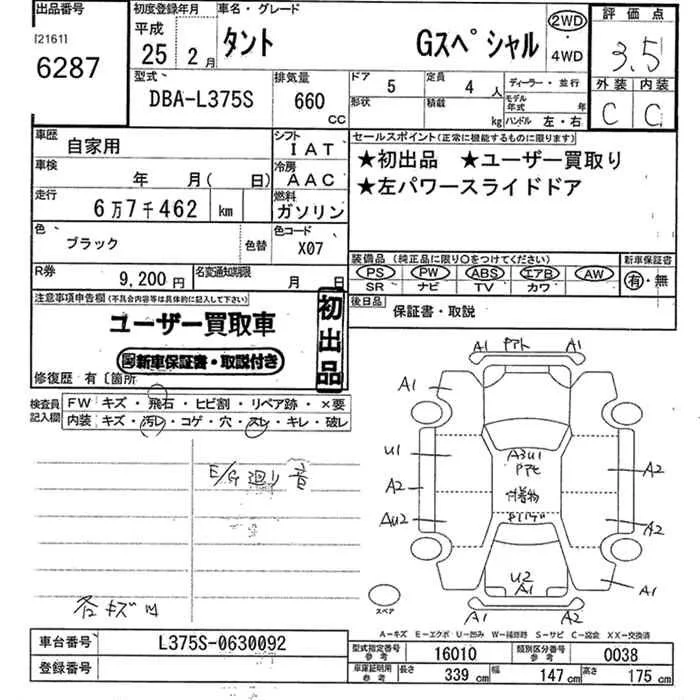 出品番号
[2161]
6287
初度登録年月
平成
25 2月
車名・グレード
タント Gスペシャル
2WD
・
4WD
評価点
3.5
外装 内装
C C
型式
DBA-L375S
排気量
660
CC
ドア 5
定員 4 人
ディーラー・並行
形状
積載 kg
モデル年式 年
ハンドル 左・右
車歴 自家用
シフト IAT
セールスポイント(正常に機能するものに限ります)
★初出品 ★ユーザー買取り
★左パワースライドドア
車検 年 月( 日)
冷房 AAC
走行 6万7千462 km
燃料 ガソリン
色 ブラック 色替
色コード X07
装備品 (純正品に限り○をつけてください)
PS PW ABS エアB AW
SR ナビ TV カワ
新車保証書
有・無
R券 9,200円
名変通知期限 月 日
後日品 保証書・取説
注意事項申告欄(不具合内容等は具体的に記入して下さい)
ユーザー買取車
新車保証書・取説付き
初出品
修復歴 有〔箇所
検査員記入欄
FW キズ・飛石・ヒビ割・リペア跡・×要
内装 キズ・汚レ・コゲ・穴・スレ・キレ・破レ
E/G廻り音
各キズ凹
A1 Pアト A1
A1
U1
A3U1
Pアセ
A2
A2
付着物
AU2
A2
U2
A1
A1
A1 A2
スペア
A－キズ E－エクボ U－凹み W－補修跡 S－サビ C－腐食 XX－交換済
車台番号 L375S-0630092
登録番号
型式指定番号 参考 16010
類別区分番号 参考 0038
車庫証明用 参考 長さ 339 cm 幅 147 cm 高さ 175 cm